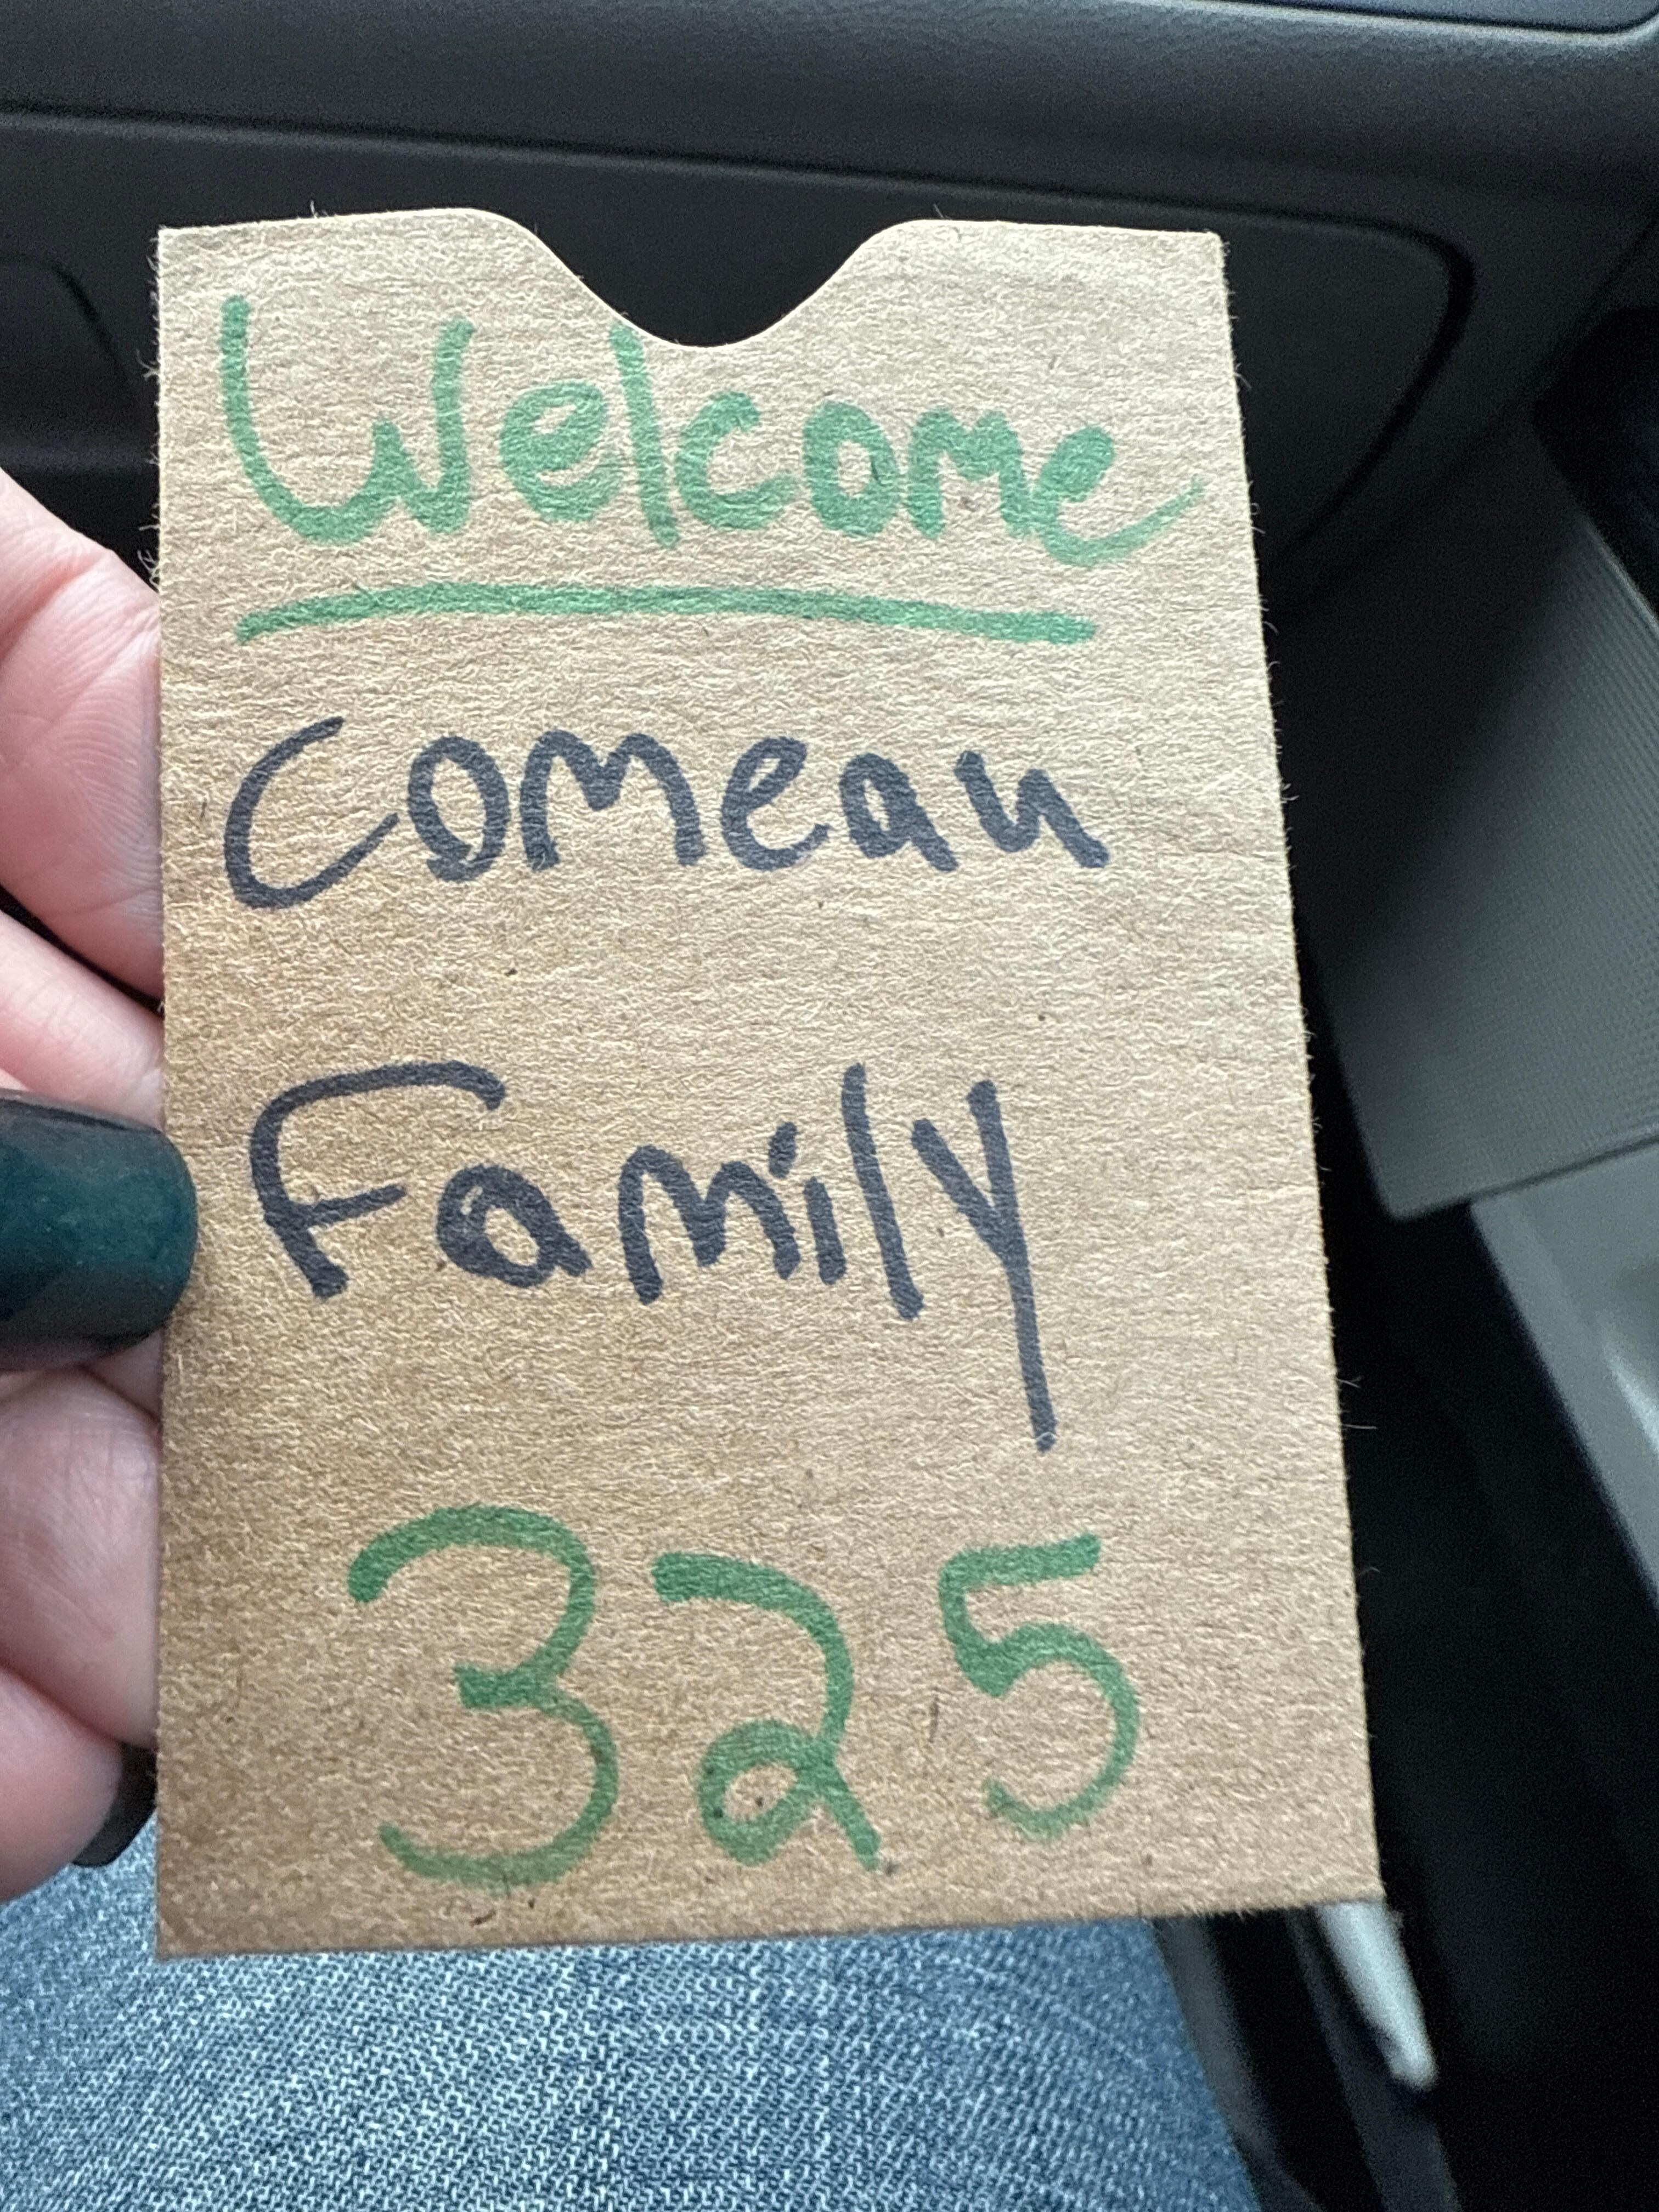 Welcome
Comeau
Family
325